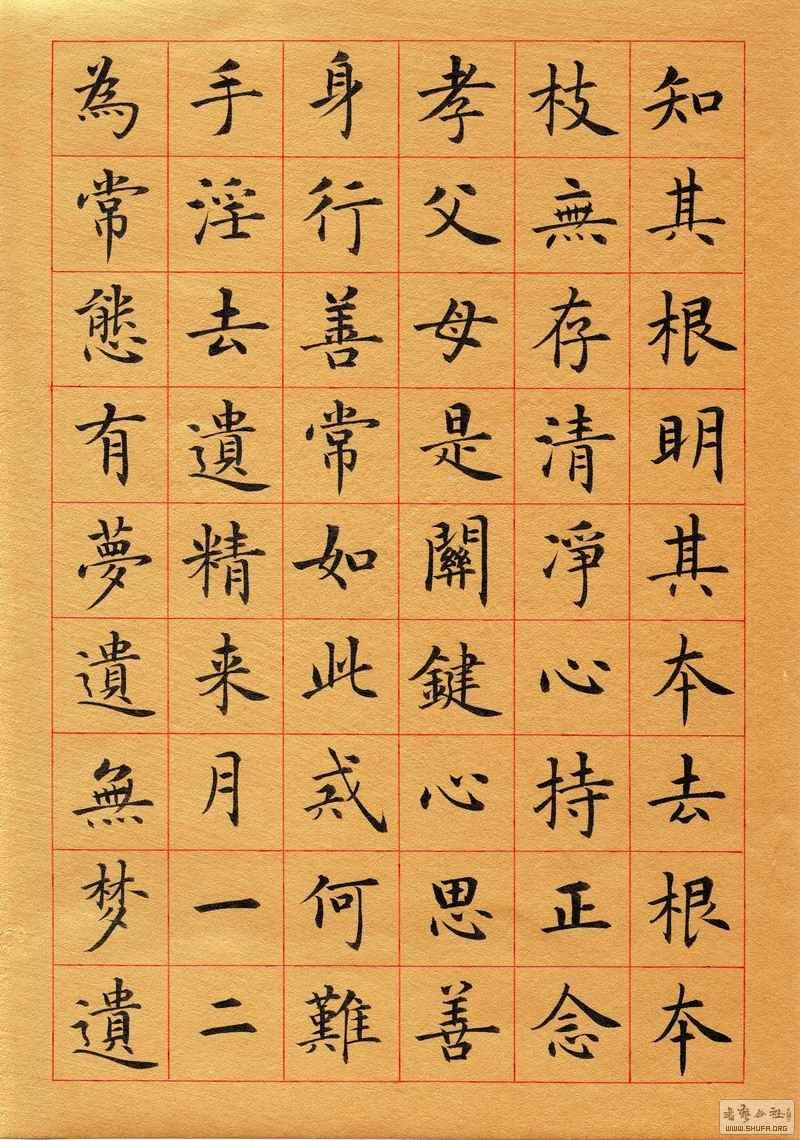 知其根明其本去根本
枝無存清淨心持正念
孝父母是關鍵心思善
身行善常如此戒何難
手淫去遺精来月一二
為常態有夢遺無梦遺
书艺公社
WWW.SHUFA.ORG